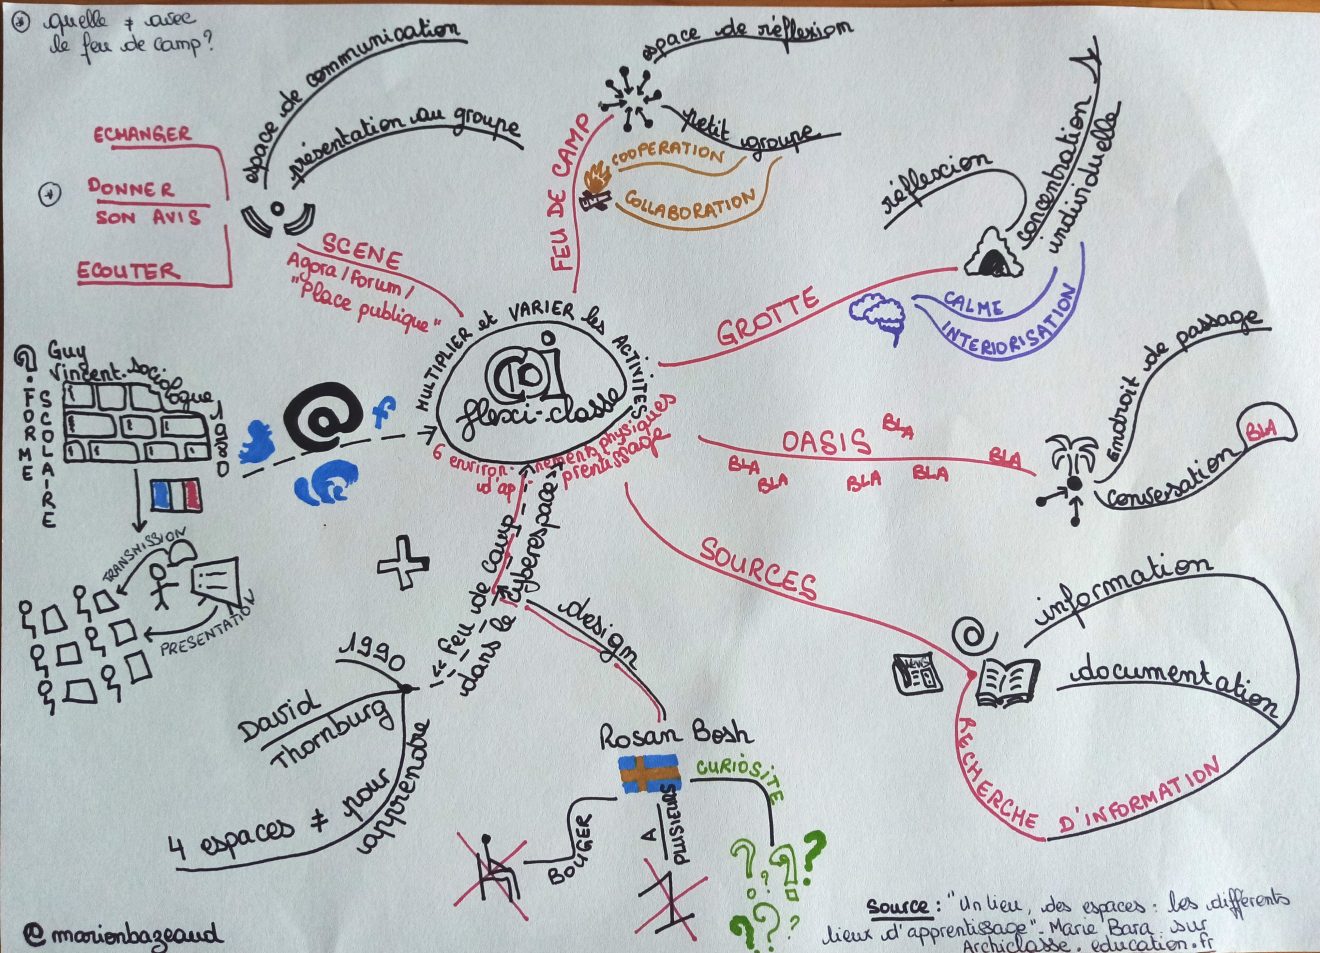 * quelle ≠ avec
le feu de camp?
espace de communication
présentation au groupe
ECHANGER
*
DONNER
SON AVIS
ECOUTER
SCENE
Agora / Forum /
"Place publique"
FEU DE CAMP
espace de réflexion
petit groupe
COOPERATION
COLLABORATION
GROTTE
réflexcion
concentration
individuelle
CALME
INTERIORISATION
OASIS
BLA
BLA
BLA
BLA
BLA
BLA
endroit de passage
conversation
BLA
SOURCES
information
documentation
NEWS
RECHERCHE D'INFORMATION
MULTIPLIER et VARIER les ACTIVITES
CDI
flexi-classe
6 environnements physiques
d'apprentissage
FORME
SCOLAIRE
Guy
Vincent. Sociologue
1980
@
f
TRANSMISSION
PRESENTATION
"feu de camp
dans le cyberespace"
1990
David
Thornburg
4 espaces ≠ pour
apprendre
design
Rosan Bosh
BOUGER
A
PLUSIEURS
CURIOSITE
? ? ? ? ? ?
@marionbazeaud
Source : "Un lieu, des espaces : les différents
lieux d'apprentissage". Marie Bara sur
Archiclasse.education.fr